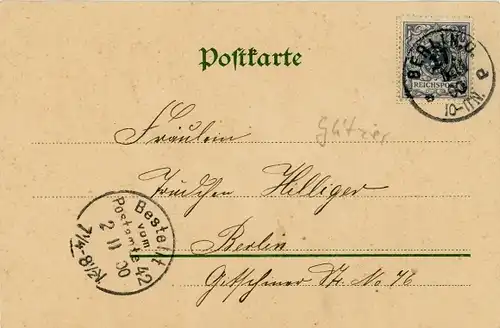 Postkarte
BERLIN.O.
REICHSPOST
10-11N.
a
Fräulein
Trudchen Hilliger
Berlin
Gitschiner Str. No 76
Bestellt
vom
Postamte 42
2 11 00
7¼-8½N